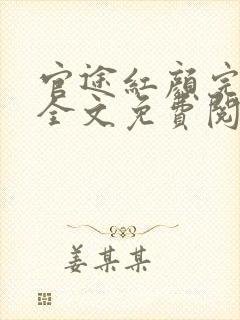 官途紅顏完
全文免費閱
姜某某